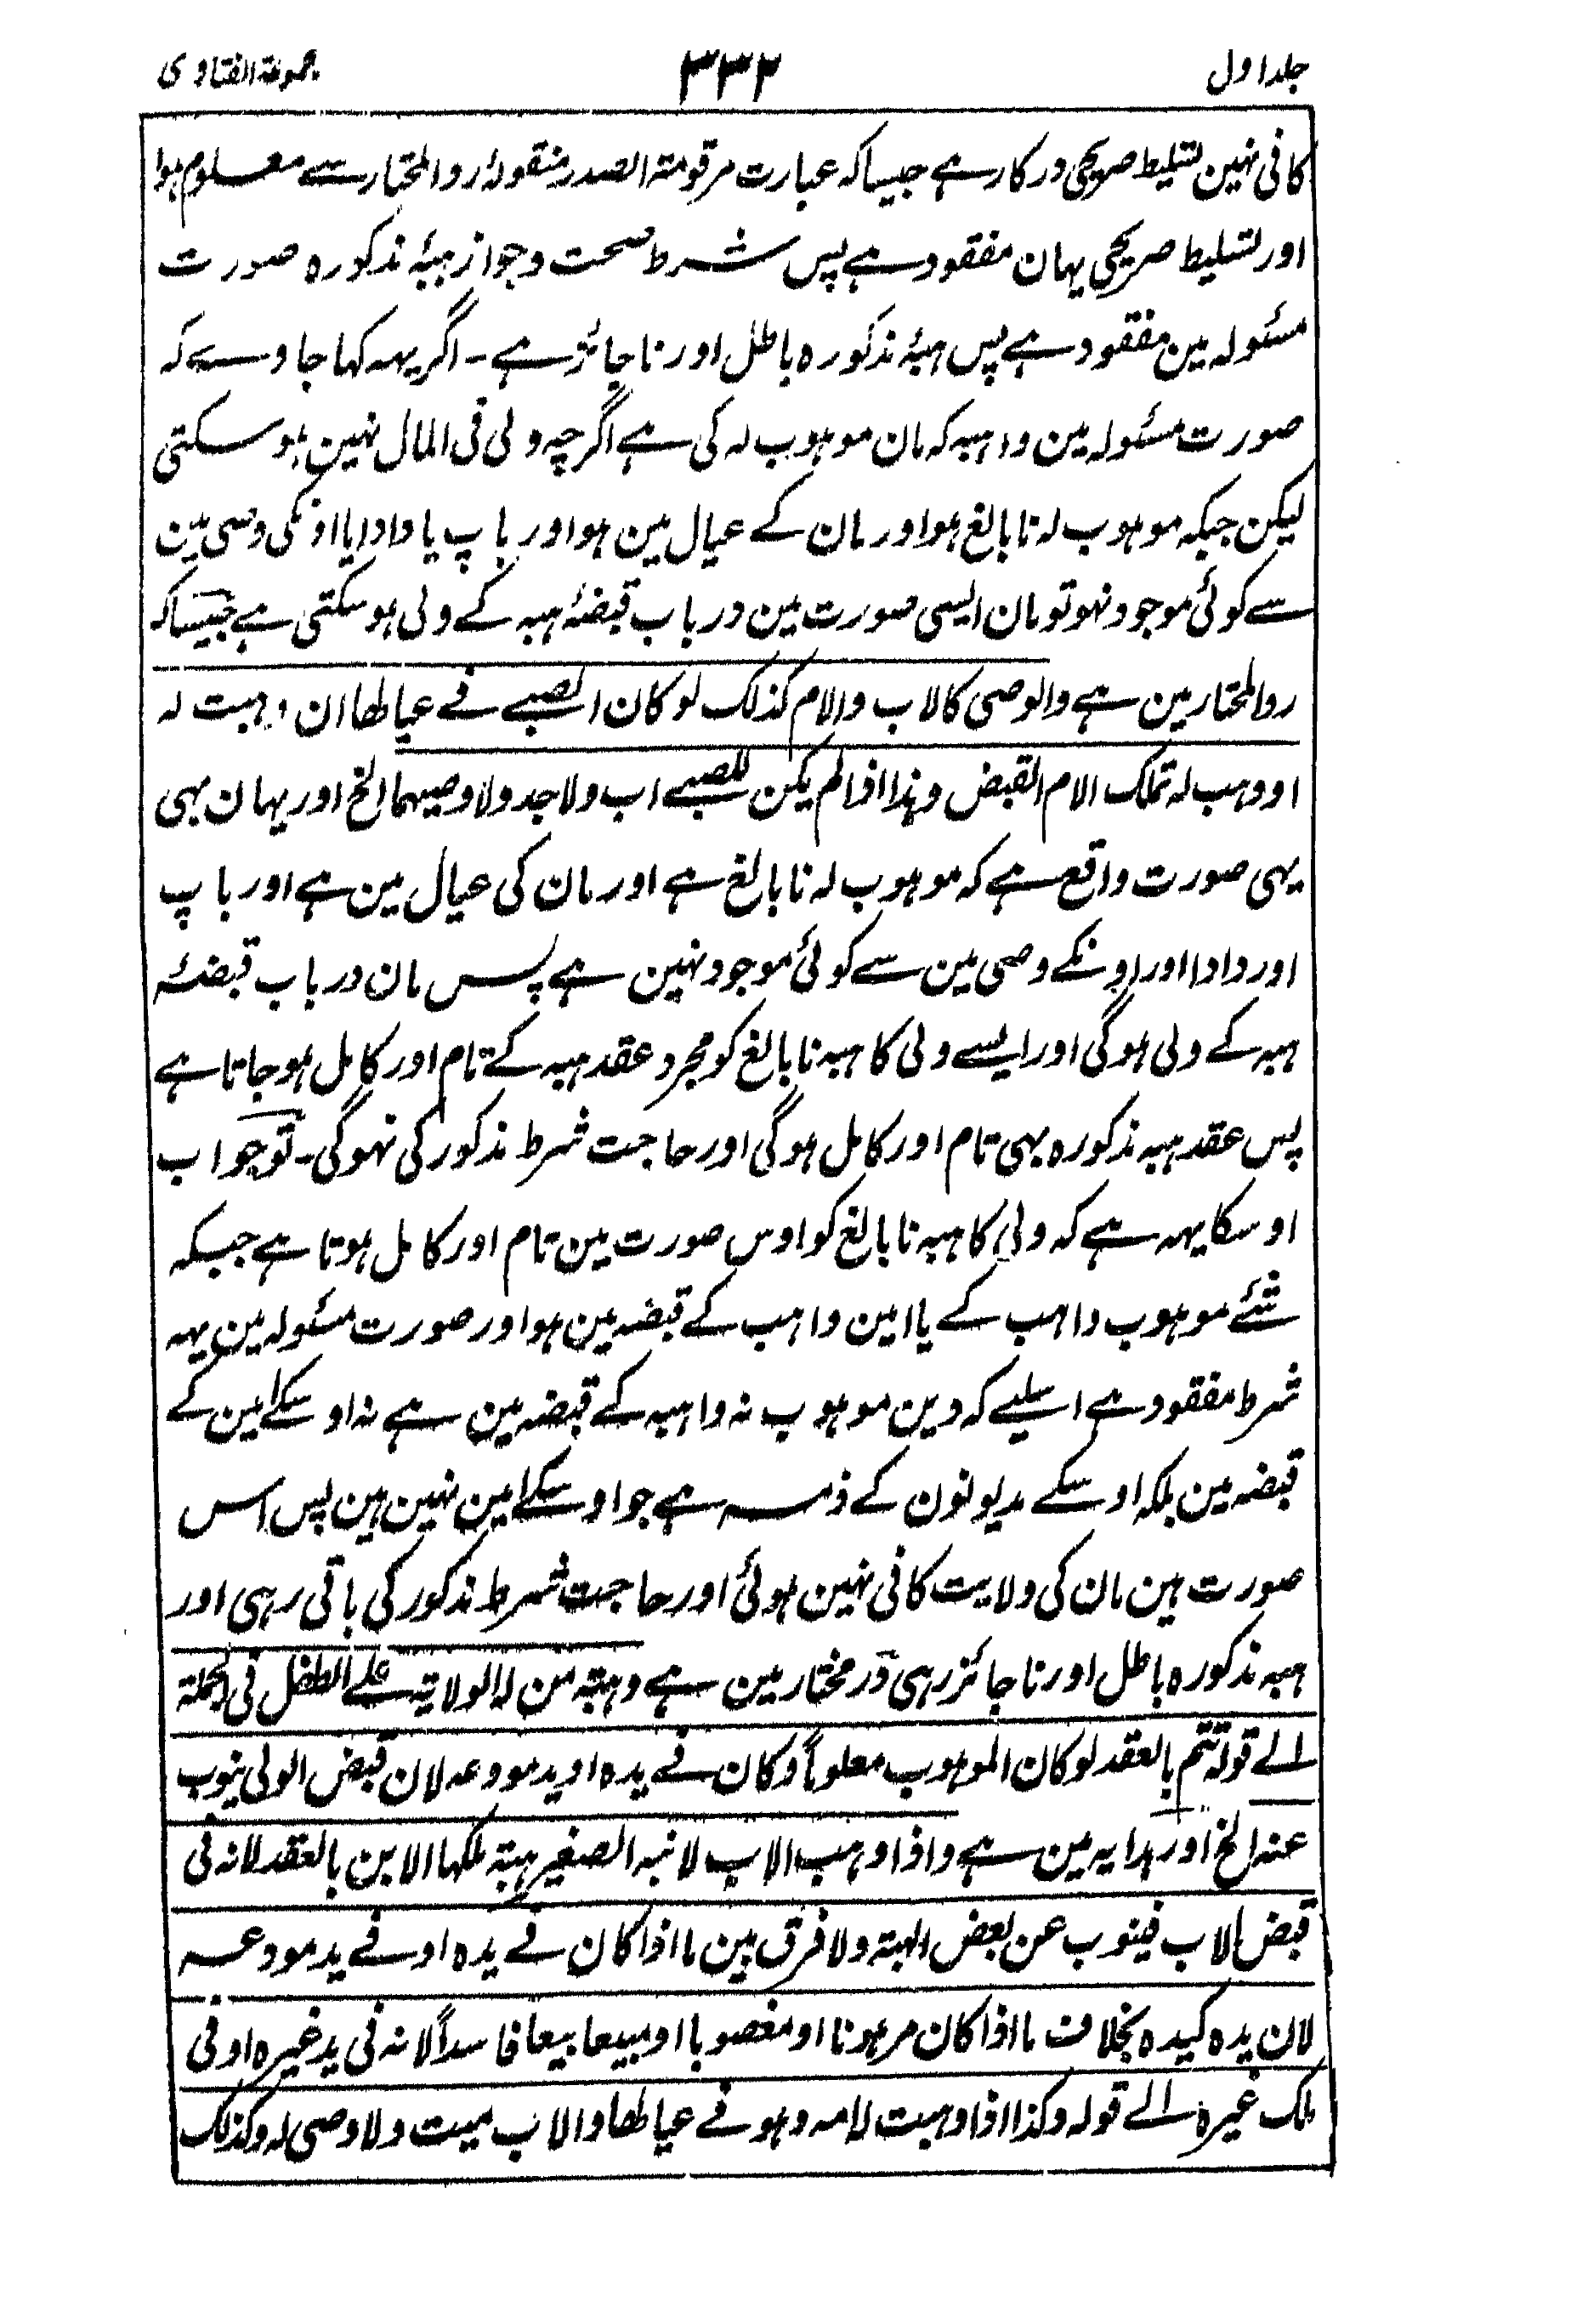 جلد اول ۳۳۲ مجموعة الفتاوی
کافی نہین تسلیط صریحی درکار ہے جیسا کہ عبارت مرقومۃ الصدر منقولۂ ردالمختار سے معلوم ہوا
اور تسلیط صریحی یہان مفقود ہے پس شرط صحت وجواز ہبۂ مذکورہ صورت
مسئولہ مین مفقود ہے پس ہبۂ مذکورہ باطل اور ناجائز ہے ۔ اگر یہہ کہا جاوے کہ
صورت مسئولہ مین واہبہ کہ مان موہوب لہ کی ہے اگرچہ ولی فی المال نہین ہو سکتی
لیکن جبکہ موہوب لہ نابالغ ہو اور مان کے عیال مین ہو اور باپ یا دادا یا اونکی وصی مین
سے کوئی موجود نہو تو مان ایسی صورت مین درباب قبضۂ ہبہ کے ولی ہو سکتی ہے جیسا کہ
ردالمختار مین ہے والوصی کالاب والام کذلک لو کان الصبے فے عیالھا ان وہبت لہ
او وہب لہ تملک الام القبض وہذا اذا لم یکن للصبے اب ولا جد ولا وصیہما الخ اور یہان بہی
یہی صورت واقع ہے کہ موہوب لہ نابالغ ہے اور مان کی عیال مین ہے اور باپ
اور دادا اور اونکے وصی مین سے کوئی موجود نہین ہے پس مان درباب قبضۂ
ہبہ کے ولی ہوگی اور ایسے ولی کا ہبہ نابالغ کو مجرد عقد ہبہ کے تام اور کامل ہو جاتا ہے
پس عقد ہبہ مذکورہ بہی تام اور کامل ہوگی اور حاجت شرط مذکور کی نہوگی ۔ تو جواب
اوسکا یہہ ہے کہ ولی کا ہبہ نابالغ کو اوس صورت مین تام اور کامل ہوتا ہے جبکہ
شئے موہوب واہب کے یا امین واہب کے قبضہ مین ہو اور صورت مسئولہ مین یہہ
شرط مفقود ہے اسلیے کہ دین موہوب نہ واہبہ کے قبضہ مین ہے نہ اوسکے امین کے
قبضہ مین بلکہ اوسکے مدیونون کے ذمہ ہے جو اوسکے امین نہین ہین پس اس
صورت مین مان کی ولایت کافی نہین ہوئی اور حاجت شرط مذکور کی باقی رہی اور
ہبہ مذکورہ باطل اور ناجائز رہی درمختار مین ہے وہبتہ من لہ الولایۃ علے الطفل فی الجملۃ
الے قولہ تتم بالعقد لو کان الموہوب معلوماً وکان فے یدہ او ید مودعہ لان قبض الولی ینوب
عنہ الخ اور ہدایہ مین ہے واذا وہب الاب لابنہ الصغیر ہبتہ ملکہا الابن بالعقد لانہ فی
قبض الاب فینوب عن بعض الہبتہ ولا فرق بین ما اذا کان فے یدہ او فے ید مودعہ
لان یدہ کیدہ بخلاف ما اذا کان مرہونا او مغصوبا او مبیعا بیعا فاسداً لانہ فی ید غیرہ او فی
ملک غیرہ الے قولہ وکذا اذا وہبت لہ امہ وہو فے عیالھا والاب میت ولا وصی لہ وکذلک